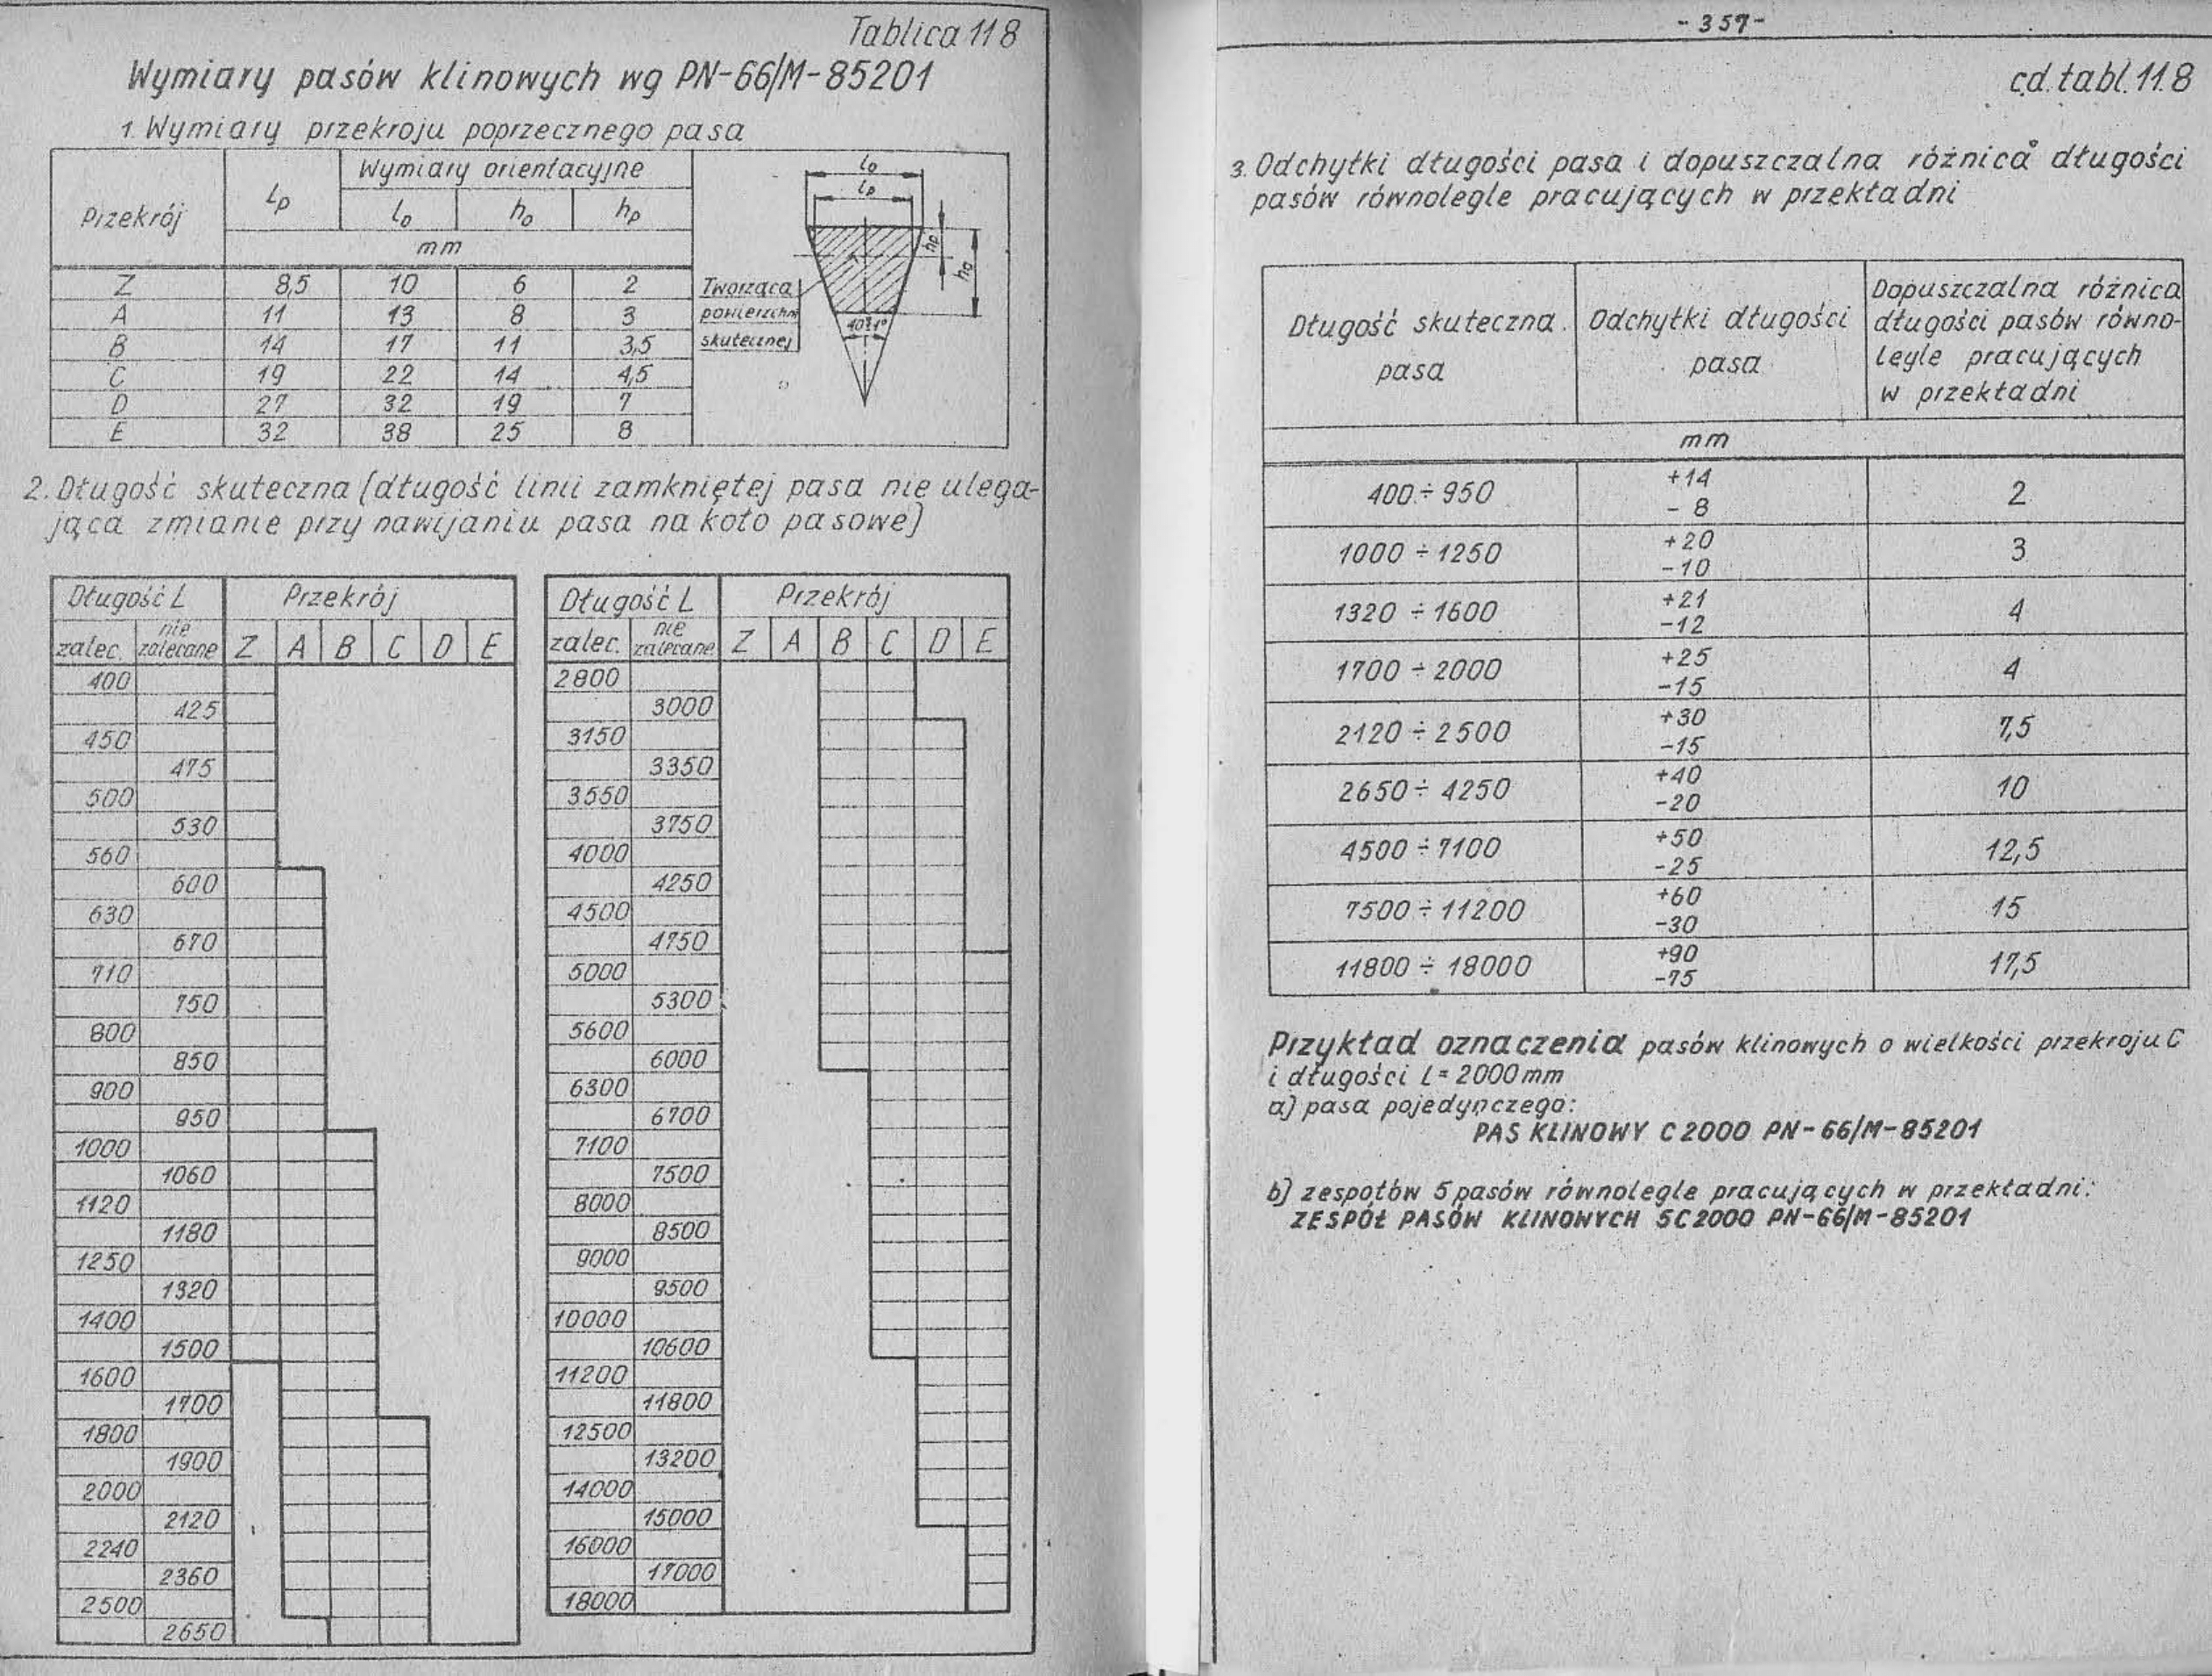 Tablica 11 8
Wymiary pasów klinowych wg PN-66/M-85201
1. Wymiary przekroju poprzecznego pasa
Przekrój lp Wymiary orientacyjne
lo ho hp
mm
Z 8,5 10 6 2
A 11 13 8 3
B 14 17 11 3,5
C 19 22 14 4,5
D 27 32 19 7
E 32 38 25 8
lo
lp
hp
ho
Tworząca
powierzchni
skutecznej
40°±1°
2. Długość skuteczna (długość linii zamkniętej pasa nie ulega-
jąca zmianie przy nawijaniu pasa na koło pasowe)
Długość L Przekrój
zalec. nie zalecane Z A B C D E
400
425
450
475
500
530
560
600
630
670
710
750
800
850
900
950
1000
1060
1120
1180
1250
1320
1400
1500
1600
1700
1800
1900
2000
2120
2240
2360
2500
2650
Długość L Przekrój
zalec. nie zalecane Z A B C D E
2800
3000
3150
3350
3550
3750
4000
4250
4500
4750
5000
5300
5600
6000
6300
6700
7100
7500
8000
8500
9000
9500
10000
10600
11200
11800
12500
13200
14000
15000
16000
17000
18000
- 357 -
cd. tabl. 11.8
3. Odchyłki długości pasa i dopuszczalna różnica długości
pasów równolegle pracujących w przekładni
Długość skuteczna
pasa
Odchyłki długości
pasa
Dopuszczalna różnica
długości pasów równo-
legle pracujących
w przekładni
mm
400 ÷ 950 +14 -8 2
1000 ÷ 1250 +20 -10 3
1320 ÷ 1600 +21 -12 4
1700 ÷ 2000 +25 -15 4
2120 ÷ 2500 +30 -15 7,5
2650 ÷ 4250 +40 -20 10
4500 ÷ 7100 +50 -25 12,5
7500 ÷ 11200 +60 -30 15
11800 ÷ 18000 +90 -75 17,5
Przykład oznaczenia pasów klinowych o wielkości przekroju C
i długości L = 2000 mm
a) pasa pojedynczego:
PAS KLINOWY C 2000 PN-66/M-85201
b) zespołów 5 pasów równolegle pracujących w przekładni:
ZESPÓŁ PASÓW KLINOWYCH 5C 2000 PN-66/M-85201